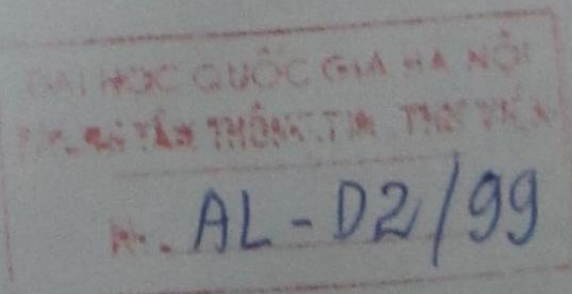 ĐẠI HỌC QUỐC GIA HÀ NỘI
TRUNG TÂM THÔNG TIN THƯ VIỆN
No. AL-D2/99